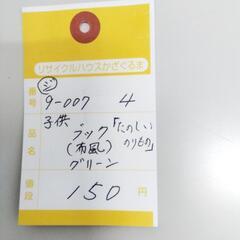 リサイクルハウスかざぐるま
ジ
番号
9-007 4
品名
子供
ブック「たのしい
のりもの」
(布風)
グリーン
値段
150円